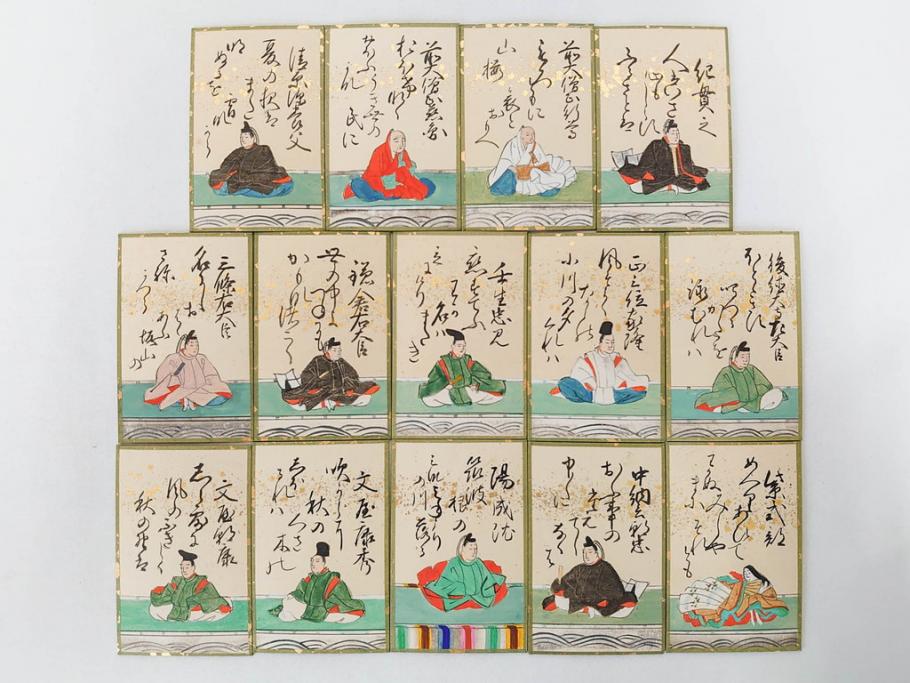 紀貫之
人はいさ
心もしらす
ふるさとは
前大僧正行尊
もろともに
哀と
おもへ
山桜
前大僧正慈円
おほけなく
うき世の
民に
清原深養父
夏の夜は
また
宵
明ぬるを
後徳大寺左大臣
ほとゝきす
詠むれは
正三位家隆
風そよく
ならの
小川の夕くれは
壬生忠見
恋すてふ
我名は
またき
立にけり
鎌倉右大臣
世の中は
つねにも
かもな渚こく
三條右大臣
名にし
おはゝ
あふ
坂山の
さね
かつら
紫式部
めくりあひて
みしや
それとも
中納言朝忠
あふ事の
絶てし
なくは
中々に
陽成院
筑波
根の
峯より
落る
みなの川
文屋康秀
吹からに
秋の
くさ
木の
しほるれは
文屋朝康
しら露に
風のふきしく
秋の野は